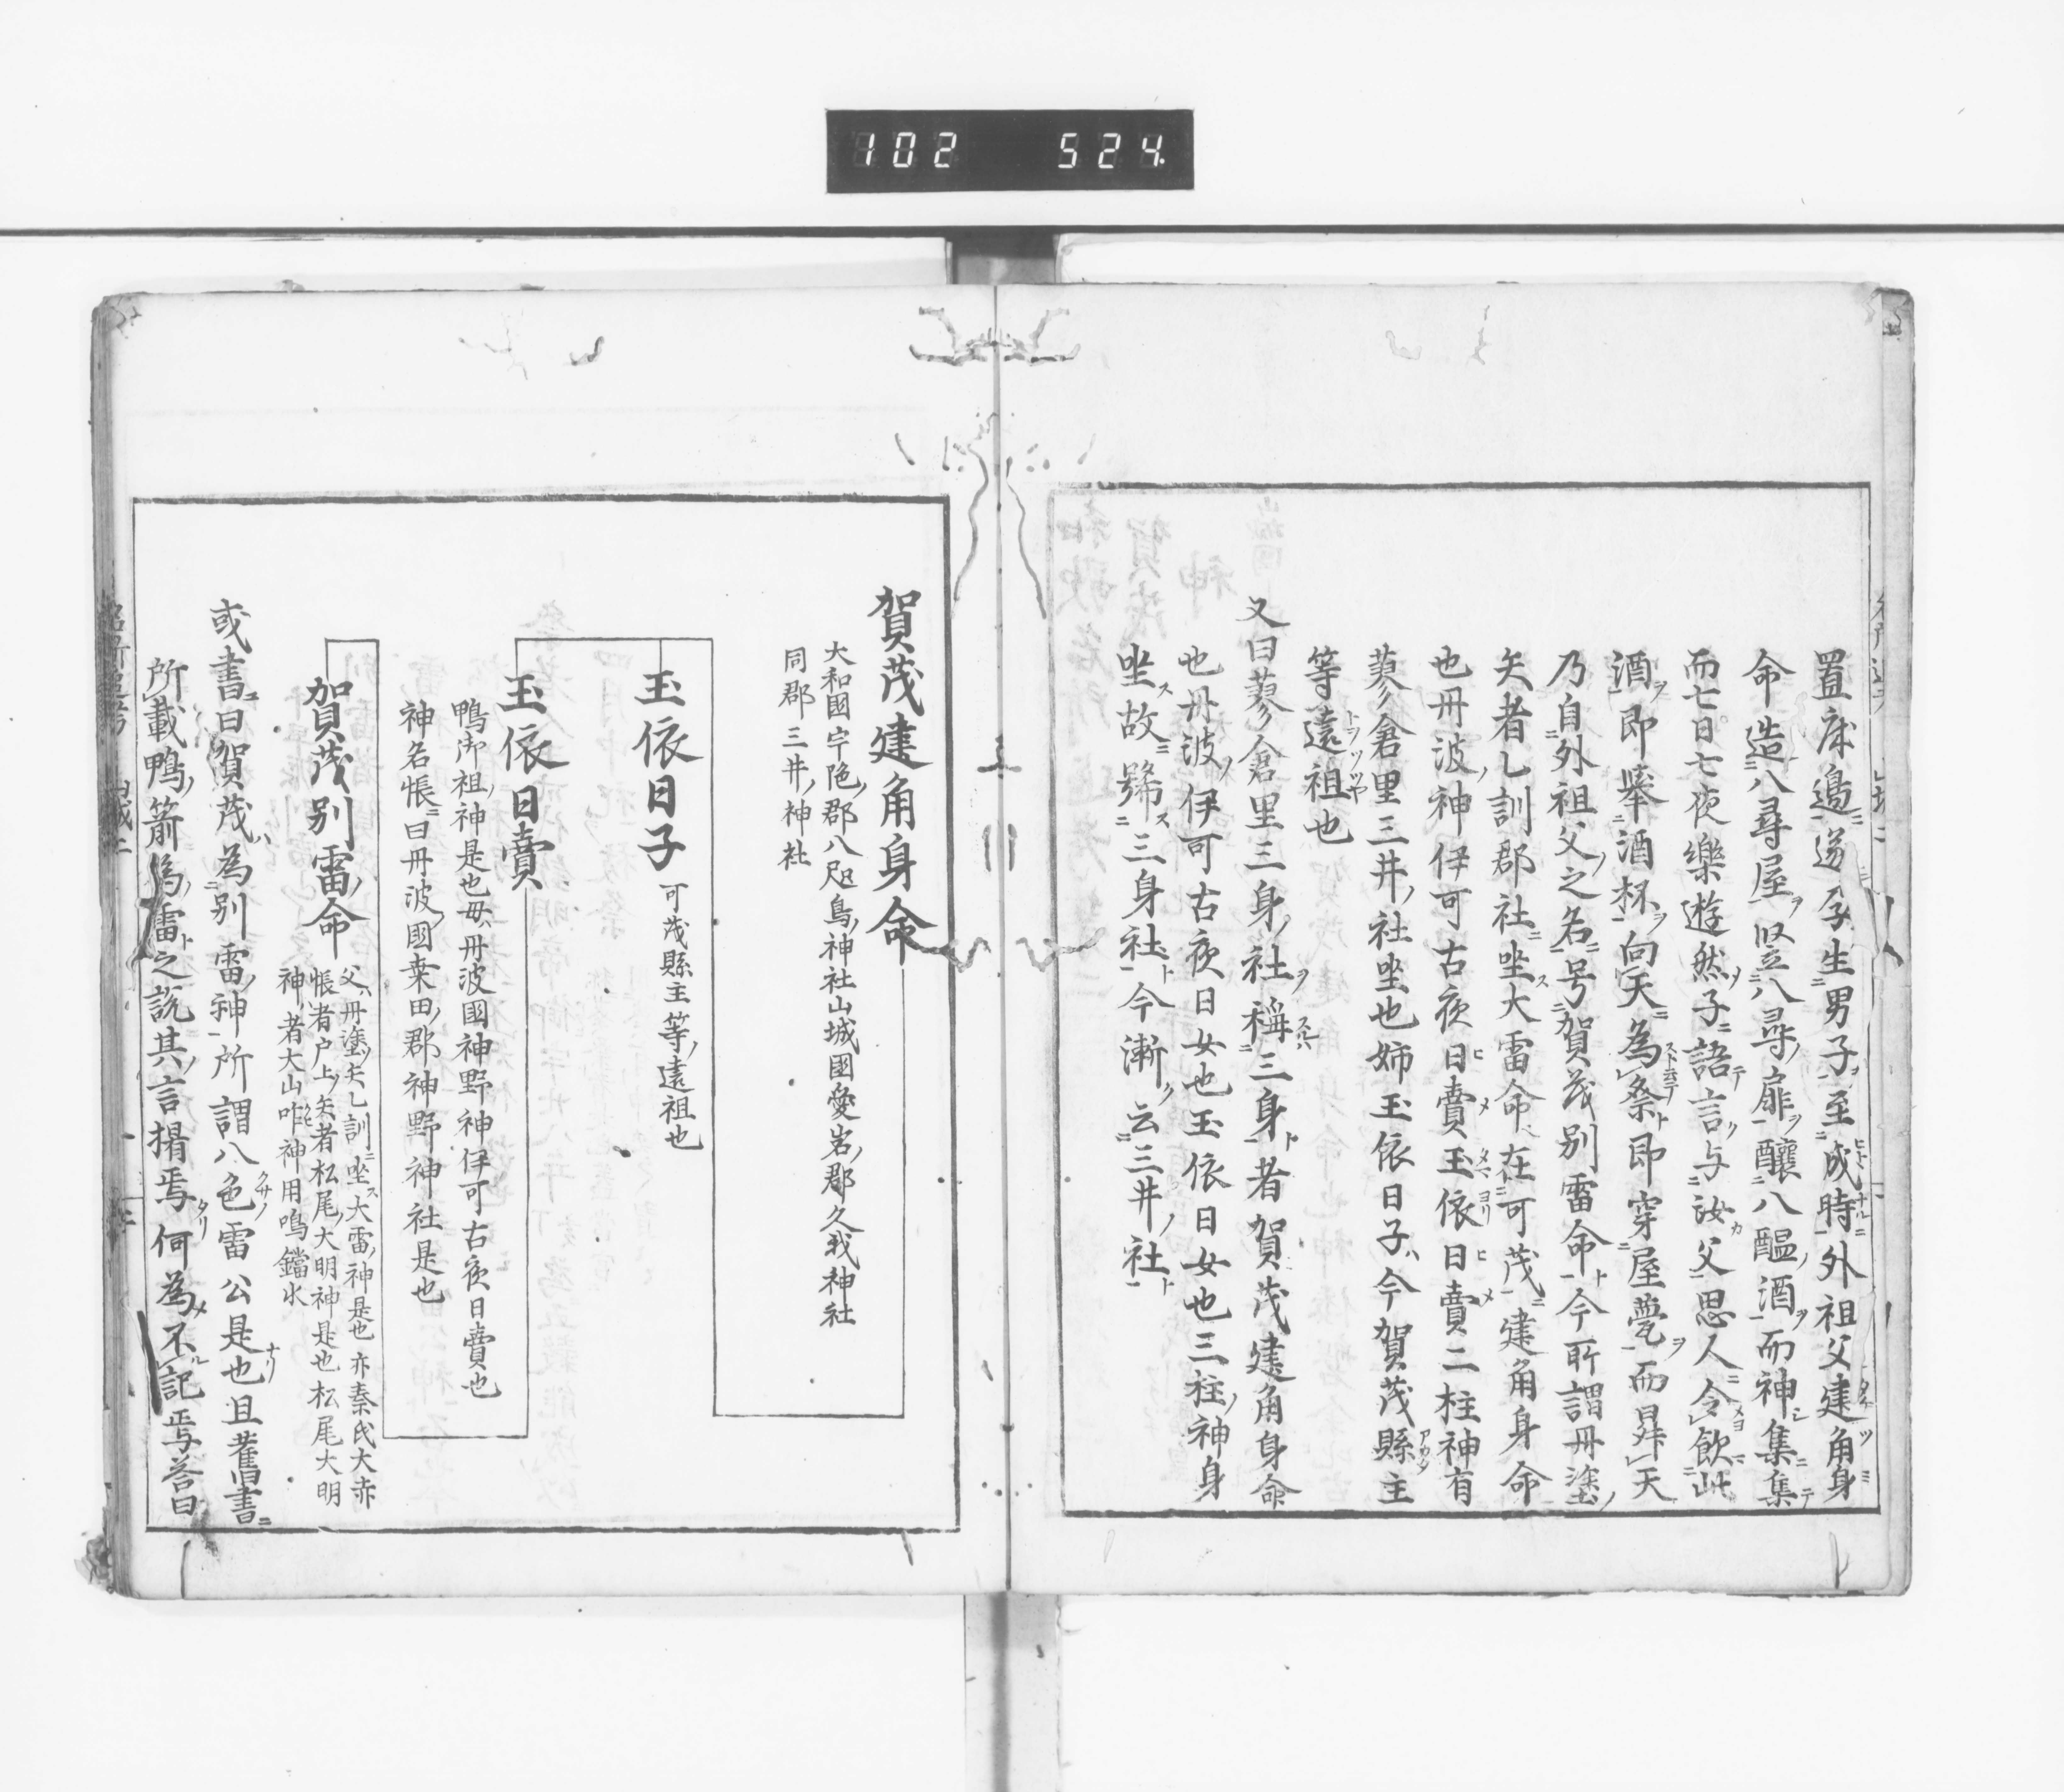 102 524
置床邊遂孕生男子至成時外祖父建角身
命造八尋屋竪八尋扉釀八醞酒而神集集
而七日七夜樂遊然子語言与汝父思人令飲此
酒即擧酒杯向天為祭即穿屋甍而昇天
乃自外祖父之名号賀茂別雷命今所謂丹塗
矢者乙訓郡社坐大雷命在可茂建角身命
也丹波神伊可古夜日賣玉依日賣二柱神有
蓼倉里三井社坐也姉玉依日子今賀茂縣主
等遠祖也
又曰蓼倉里三身社稱三身者賀茂建角身命
也丹波伊可古夜日女也玉依日女也三柱神身
坐故號三身社今漸云三井社
賀茂建角身命
大和國宇陁郡八咫烏神社山城國愛宕郡久我神社
同郡三井神社
玉依日子 可茂縣主等遠祖也
玉依日賣
鴨御祖神是也毋丹波國神野神伊可古夜日賣也
神名帳曰丹波國桒田郡神野神社是也
賀茂別雷命
父丹塗矢乙訓坐大雷神是也亦秦氏大赤
帳者戸上矢者松尾大明神是也松尾大明
神者大山咋神用鳴鏑水
或書曰賀茂為別雷神所謂八色雷公是也且舊書
所載鴨箭為雷之說其言揭焉何為不記焉荅曰